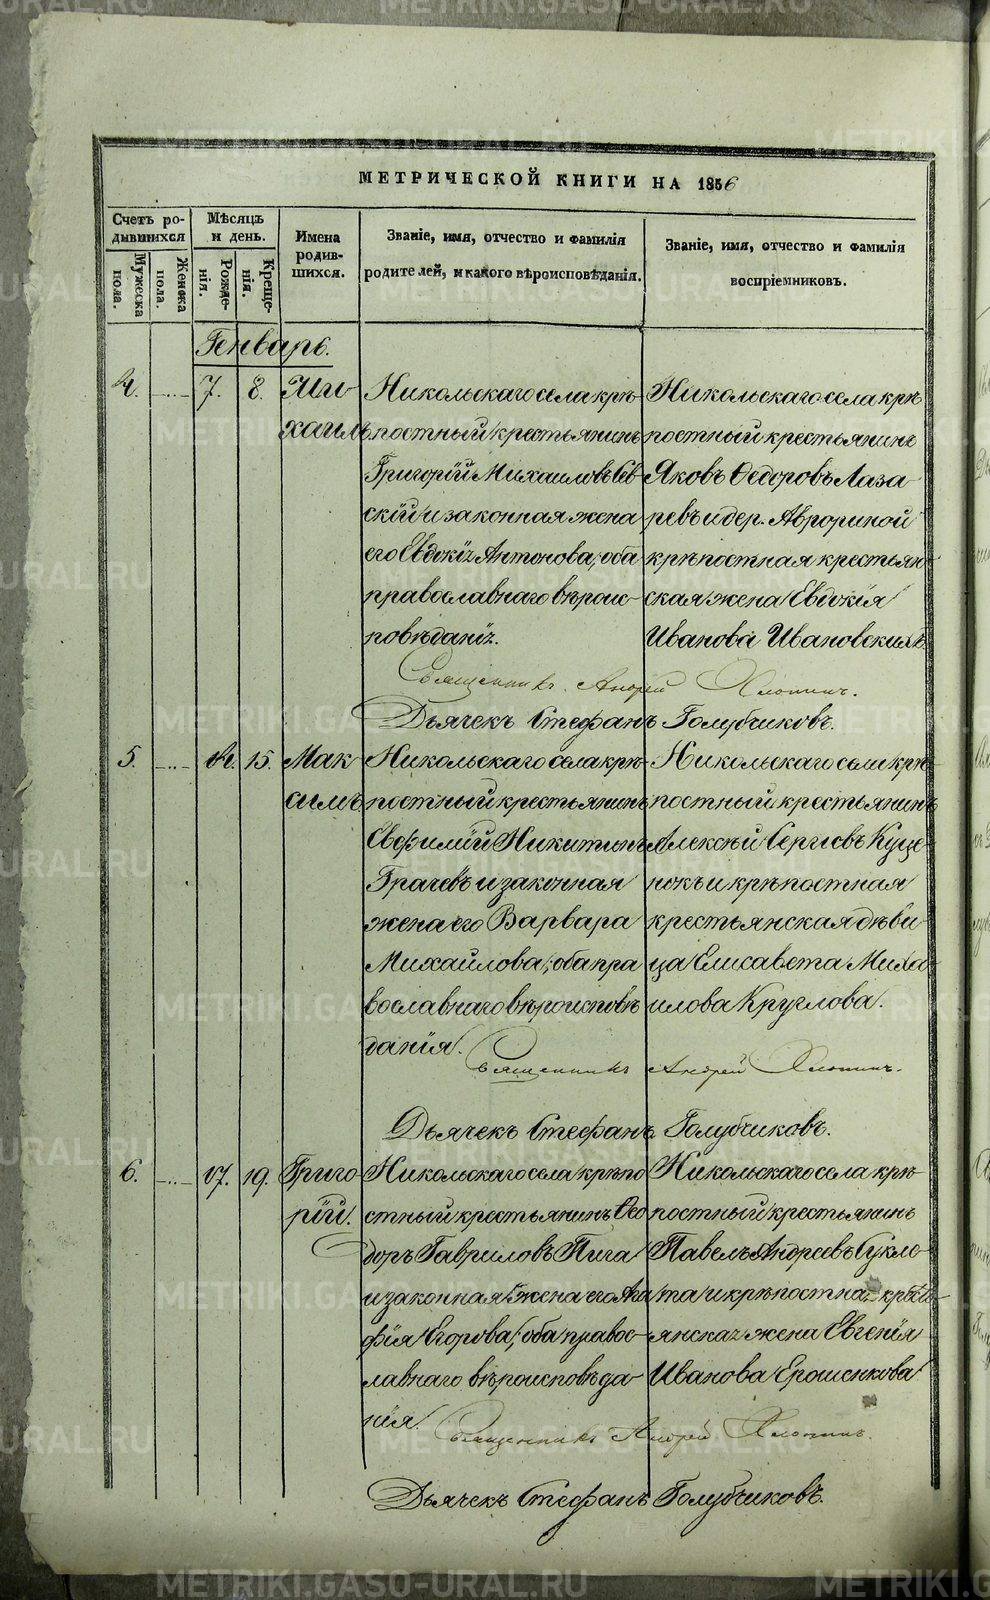 МЕТРИЧЕСКОЙ КНИГИ НА 1856
Счетъ ро-
дившихся
Мужеска
пола.
Женска
пола.
Мѣсяцъ
и день.
Рожде-
нія.
Креще-
нія.
Имена
родив-
шихся.
Званіе, имя, отчество и фамилія
родителей, и какого вѣроисповѣданія.
Званіе, имя, отчество и фамилія
воспріемниковъ.
Генварь.
4. 7. 8. Ми-
хаилъ
Никольскаго села крѣ-
постный крестьянинъ
Григорій Михаиловъ
скій и законная жена
его Евдокія Антонова, оба
православнаго вѣроис-
повѣданія.
Никольскаго села крѣ
постный крестьянинъ
Яковъ Ѳедоровъ Лаза-
ревъ и дер. Аврориной
крѣпостная крестьян-
ская жена Евдокія
Иванова Ивановскихъ.
Священникъ Андрей
Дьячекъ Стефанъ Голубчиковъ.
5. 14. 15. Мак
симъ
Никольскаго села крѣ-
постный крестьянинъ
Евфимій Никитинъ
Грачевъ и законная
жена его Варвара
Михайлова; оба пра
вославнаго вѣроисповѣ
данія.
Никольскаго села крѣ-
постный крестьянинъ
Алексѣй Сергіевъ Куце-
нокъ и крѣпостная
крестьянская дѣви
ца Елисавета Миха-
илова Круглова.
Священникъ Андрей
Дьячекъ Стефанъ Голубчиковъ.
6. 17. 19. Григо-
рій.
Никольскаго села крѣпо
стный крестьянинъ Ѳео
доръ Гавриловъ Пига
и законная жена его Ага
фія Егорова; оба правос-
лавнаго вѣроисповѣда-
нія.
Никольскаго села крѣ-
постный крестьянинъ
Павелъ Андреевъ Сукло-
та и крѣпостная
янская жена Евгенія
Иванова Ерошенкова
Священникъ Андрей
Дьячекъ Стефанъ Голубчиковъ.
METRIKI.GASO-URAL.RU